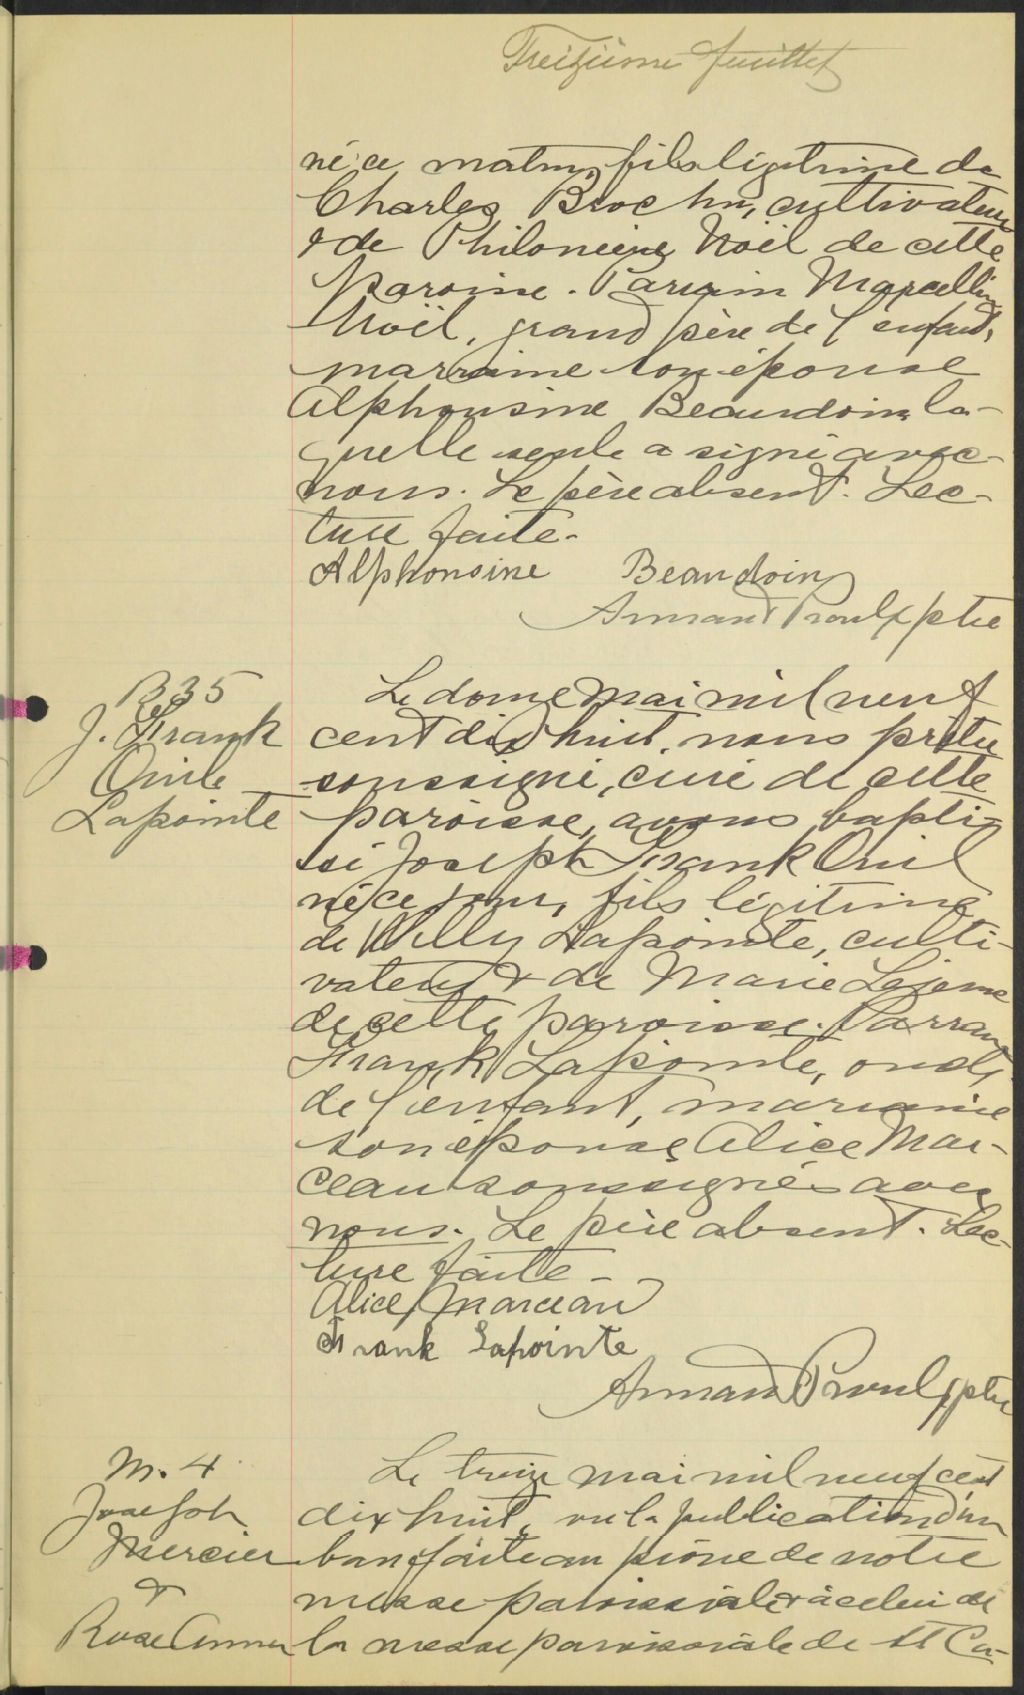 Treizième feuillet
né ce matin, fils légitime de
Charles Brochu, cultivateur
& de Philomène Noël de cette
paroisse. Parrain Marcellin
Noël, grand père de l'enfant,
marraine son épouse
Alphonsine Beaudoin la-
quelle seule a signé avec
nous. Le père absent. Lec-
ture faite.
Alphonsine Beaudoin
Armand Proulx ptre
B 35
J. Frank
Ovile
Lapointe
Le douze mai mil neuf
cent dix huit, nous prêtre
soussigné, curé de cette
paroisse, avons bapti-
sé Joseph Frank Ovil
né ce jour, fils légitime
de Willy Lapointe, culti-
vateur & de Marie Lejeune
de cette paroisse. Parrain
Frank Lapointe, oncle
de l'enfant, marraine
son épouse Alice Mar-
ceau soussignés avec
nous. Le père absent. Lec-
ture faite -
Alice Marceau
Frank Lapointe
Armand Proulx ptre
M. 4
Joseph
Mercier
&
Rose Anna
Le treize mai mil neuf cent
dix huit, vu la publication d'un
ban faite au prône de notre
messe paroissiale & à celui de
la messe paroissiale de St Ca-